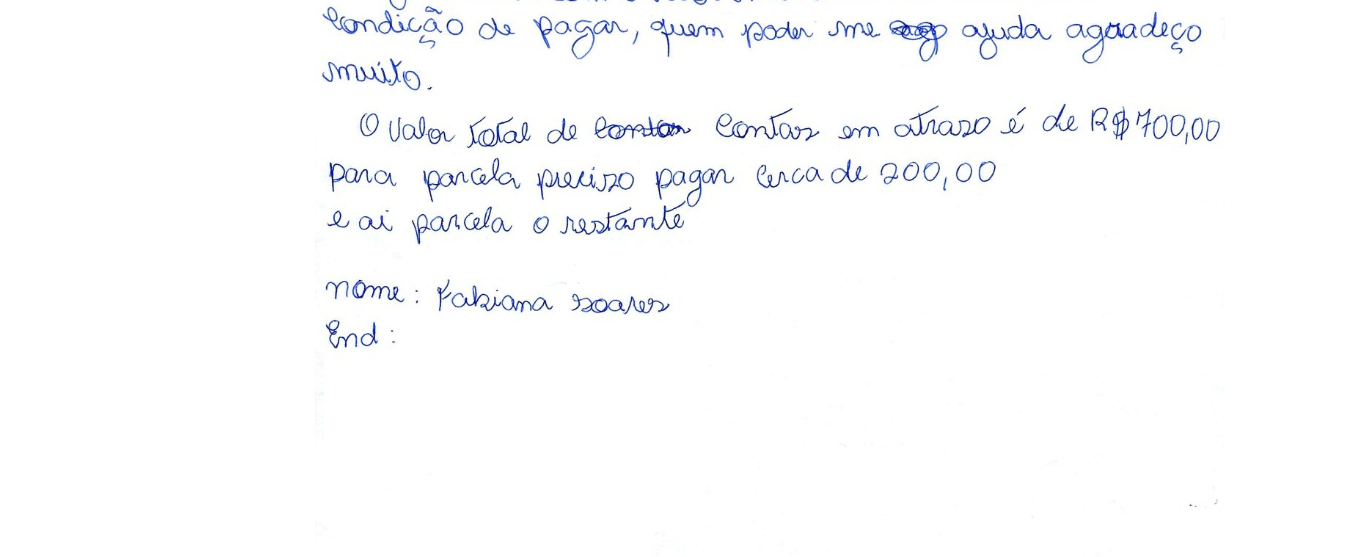 condição de pagar, quem poder me ajuda agradeço
muito.
O valor total de contas em atrazo é de R$700,00
para parcela precizo pagar cerca de 200,00
e ai parcela o restante
nome: Fabiana soares
End: